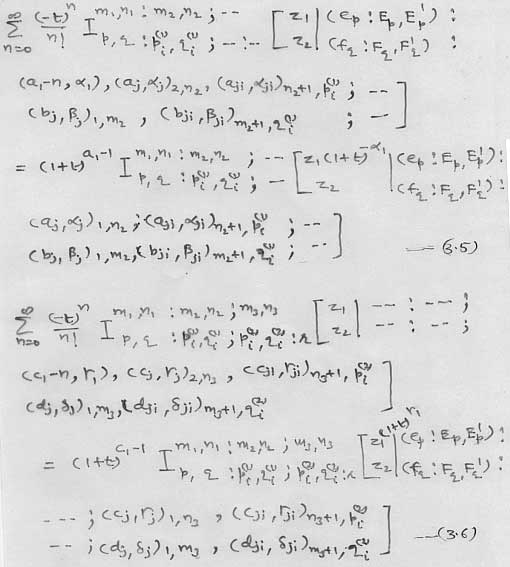 ∑_{n=0}^{∞} (-t)^n/n! I_{p, q : p_i^{(1)}, q_i^{(1)} ; - : -}^{m_1, n_1 : m_2, n_2 ; --} [ z_1 | (e_p : E_p, E_p') :
z_2 | (f_q : F_q, F_q') :
(a_1-n, α_1), (a_j, α_j)_{2, n_2}, (a_{ji}, α_{ji})_{n_2+1, p_i^{(1)}} ; --
(b_j, β_j)_{1, m_2} , (b_{ji}, β_{ji})_{m_2+1, q_i^{(1)}} ; -- ]
= (1+t)^{a_1-1} I_{p, q : p_i^{(1)}, q_i^{(1)} ; -}^{m_1, n_1 : m_2, n_2 ; --} [ z_1(1+t)^{-α_1} | (e_p : E_p, E_p') :
z_2 | (f_q : F_q, F_q') :
(a_j, α_j)_{1, n_2} ; (a_{ji}, α_{ji})_{n_2+1, p_i^{(1)}} ; --
(b_j, β_j)_{1, m_2}, (b_{ji}, β_{ji})_{m_2+1, q_i^{(1)}} ; -- ] — (3.5)
∑_{n=0}^{∞} (-t)^n/n! I_{p, q : p_i^{(1)}, q_i^{(1)} ; p_i^{(2)}, q_i^{(2)} : r}^{m_1, n_1 : m_2, n_2 ; m_3, n_3} [ z_1 | -- : -- ;
z_2 | -- : -- ;
(c_1-n, r_1), (c_j, r_j)_{2, n_3} , (c_{ji}, r_{ji})_{n_3+1, p_i^{(2)}}
(d_j, δ_j)_{1, m_3}, (d_{ji}, δ_{ji})_{m_3+1, q_i^{(2)}} ]
= (1+t)^{c_1-1} I_{p, q : p_i^{(1)}, q_i^{(1)} ; p_i^{(2)}, q_i^{(2)} : r}^{m_1, n_1 : m_2, n_2 ; m_3, n_3} [ z_1^{(1+t)^{r_1}} | (e_p : E_p, E_p') :
z_2 | (f_q : F_q, F_q') :
--- ; (c_j, r_j)_{1, n_3} , (c_{ji}, r_{ji})_{n_3+1, p_i^{(2)}}
-- ; (d_j, δ_j)_{1, m_3} , (d_{ji}, δ_{ji})_{m_3+1, q_i^{(2)}} ] — (3.6)